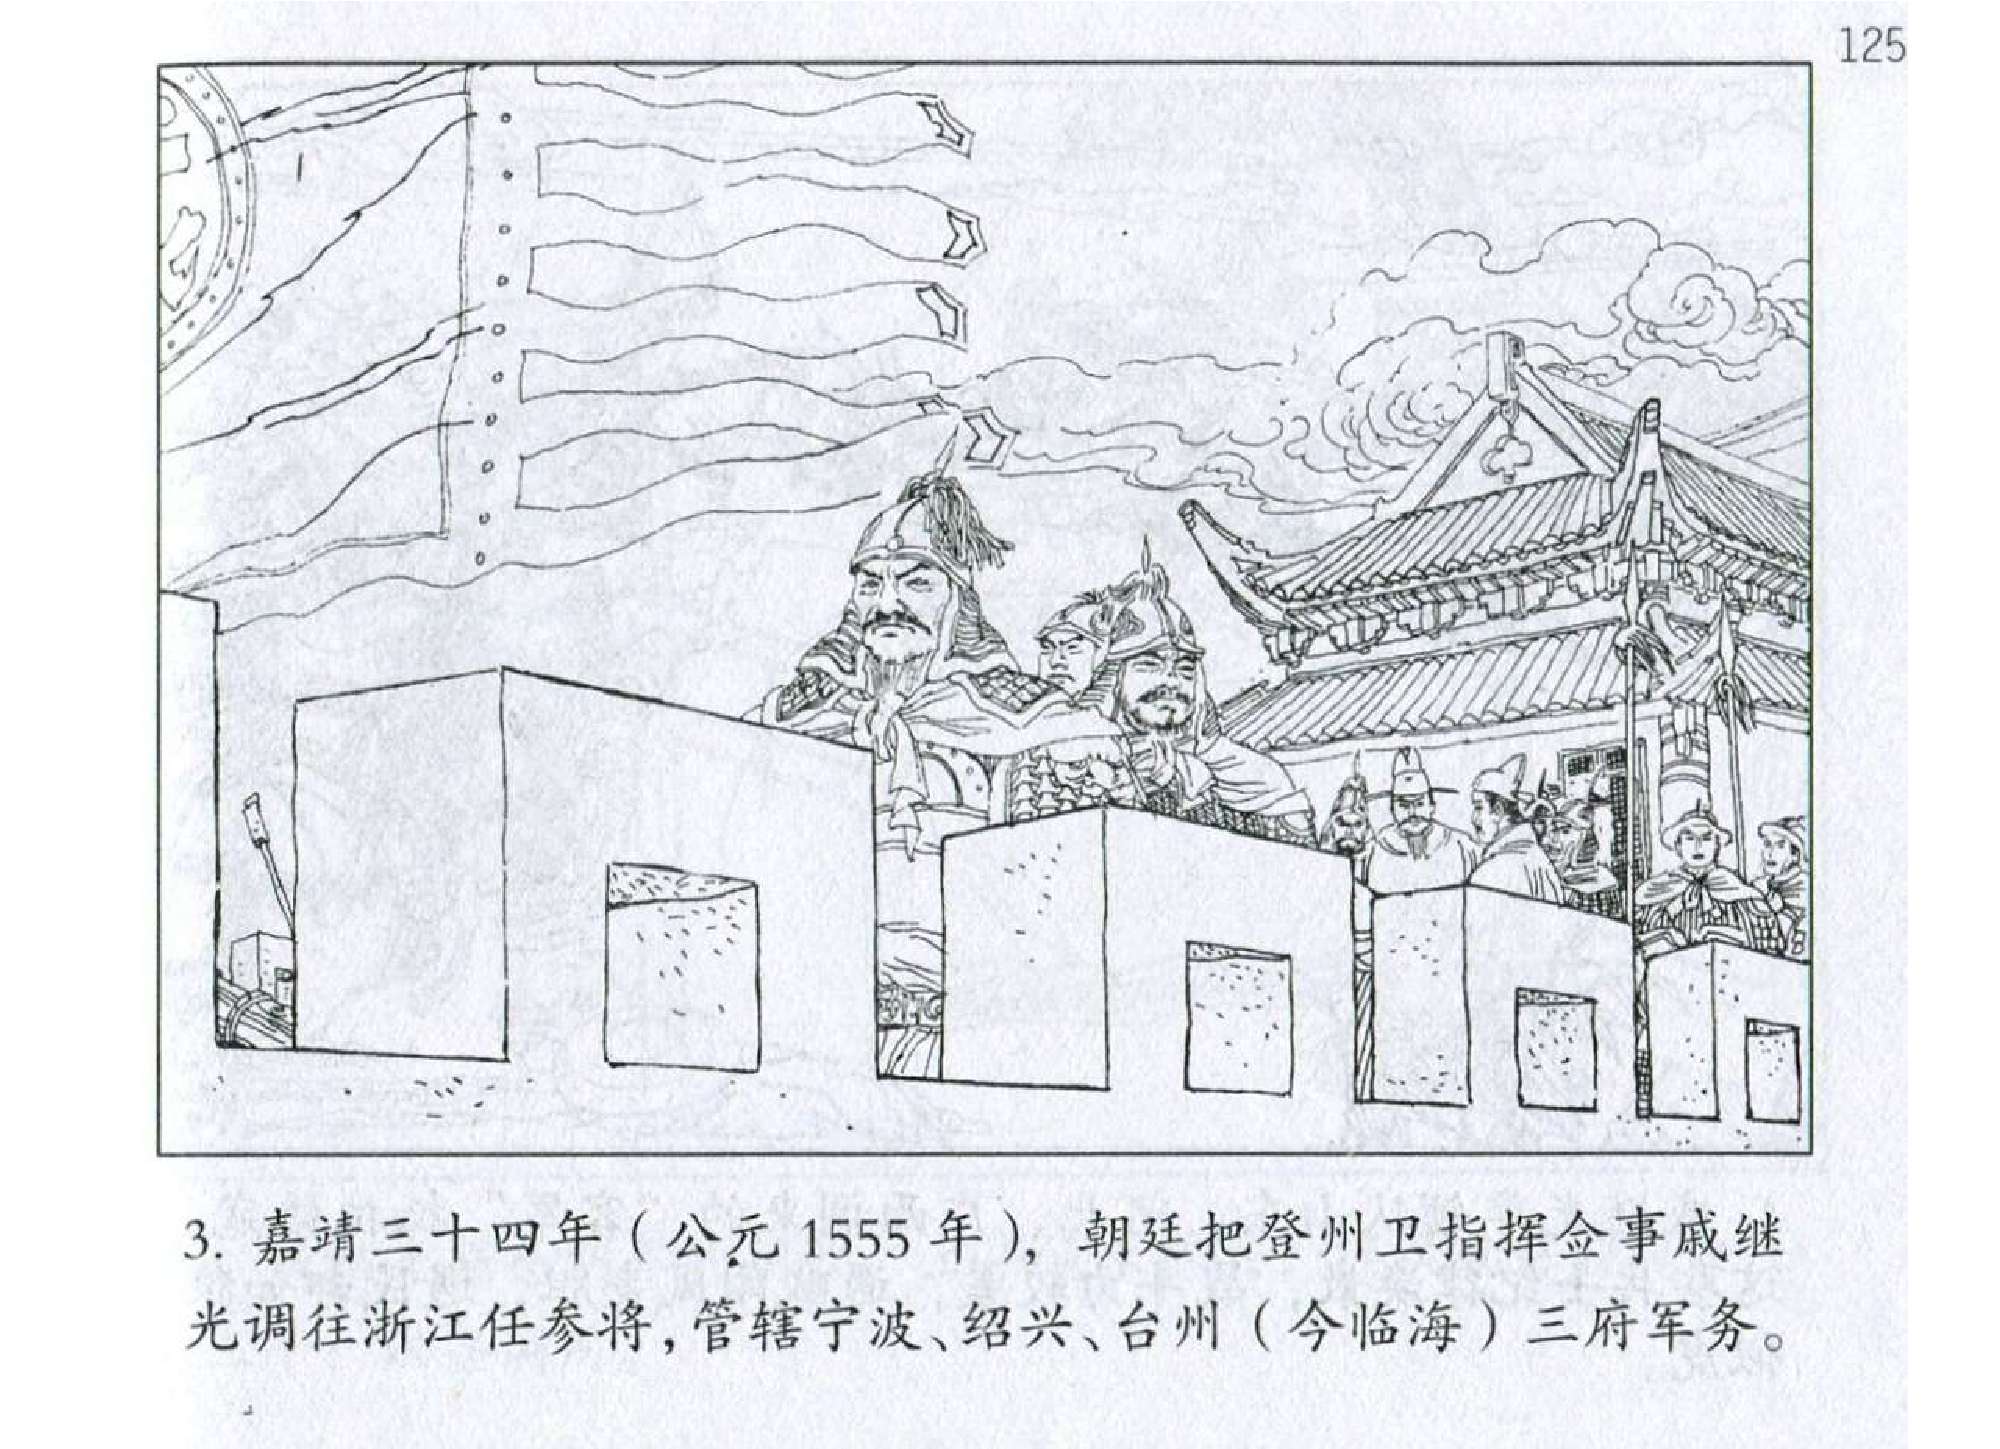 125
3. 嘉靖三十四年（公元 1555 年），朝廷把登州卫指挥佥事戚继
光调往浙江任参将，管辖宁波、绍兴、台州（今临海）三府军务。